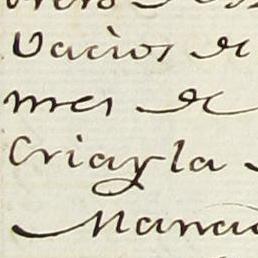 Vacios de
mes de
Cria y la
Mana